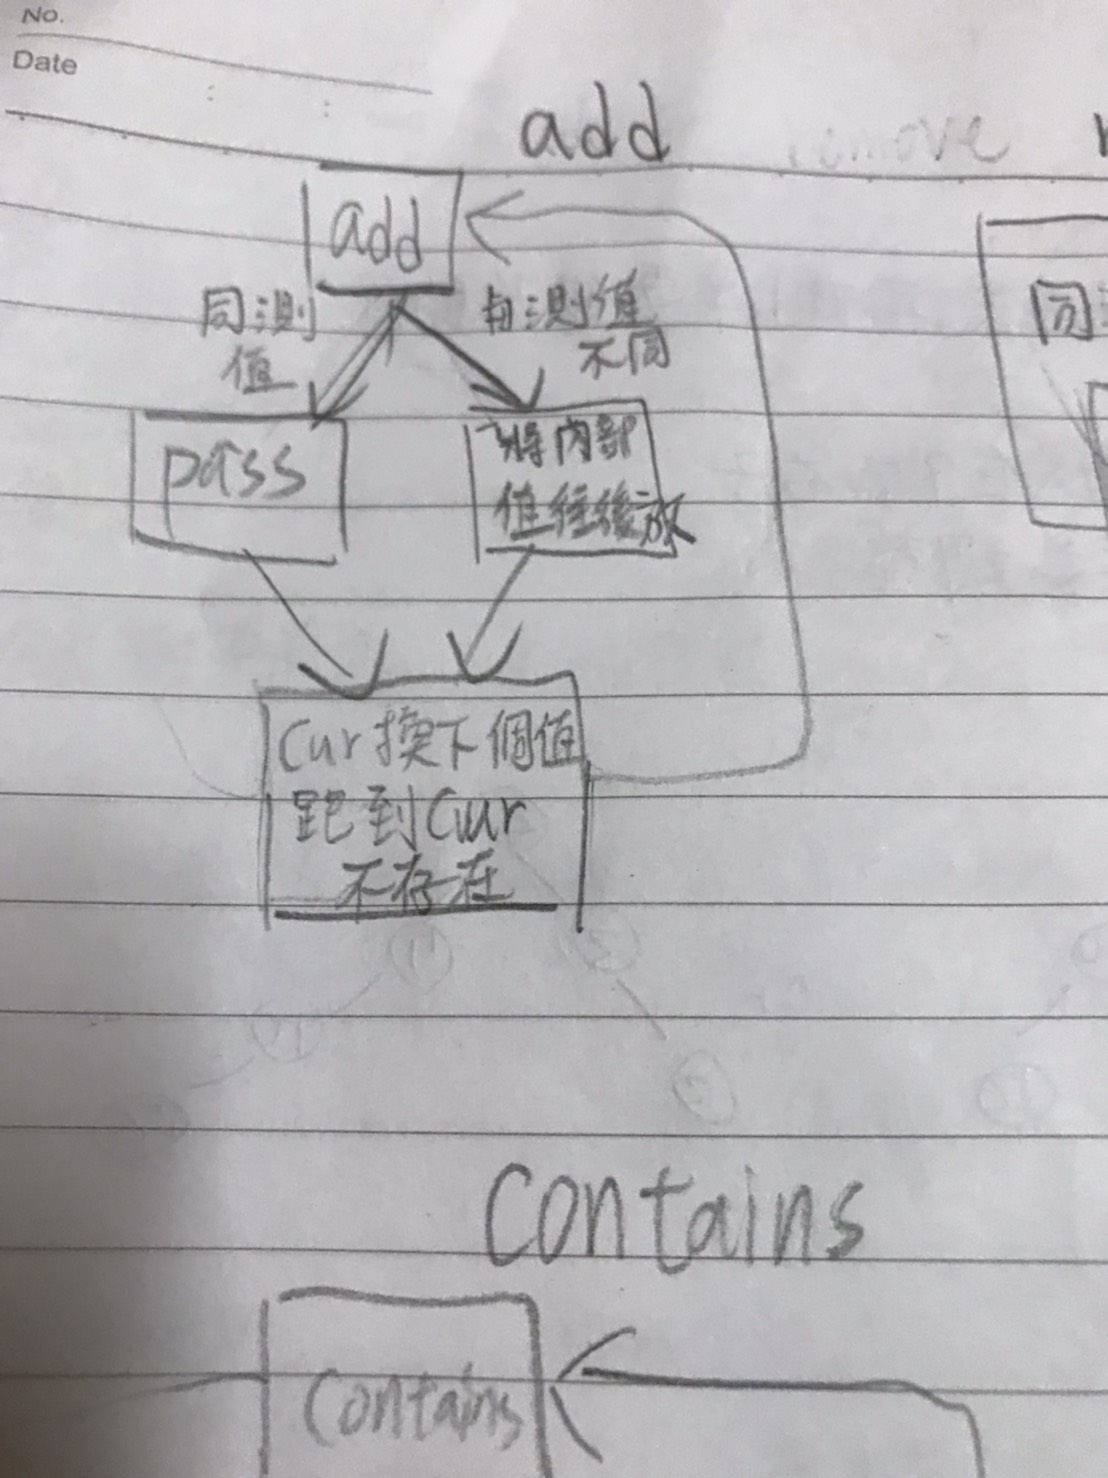 No.
Date
add
remove
add
同測
值
與測值
不同
同
pass
將內部
值往後放
Cur換下個值
跑到Cur
不存在
Contains
Contains